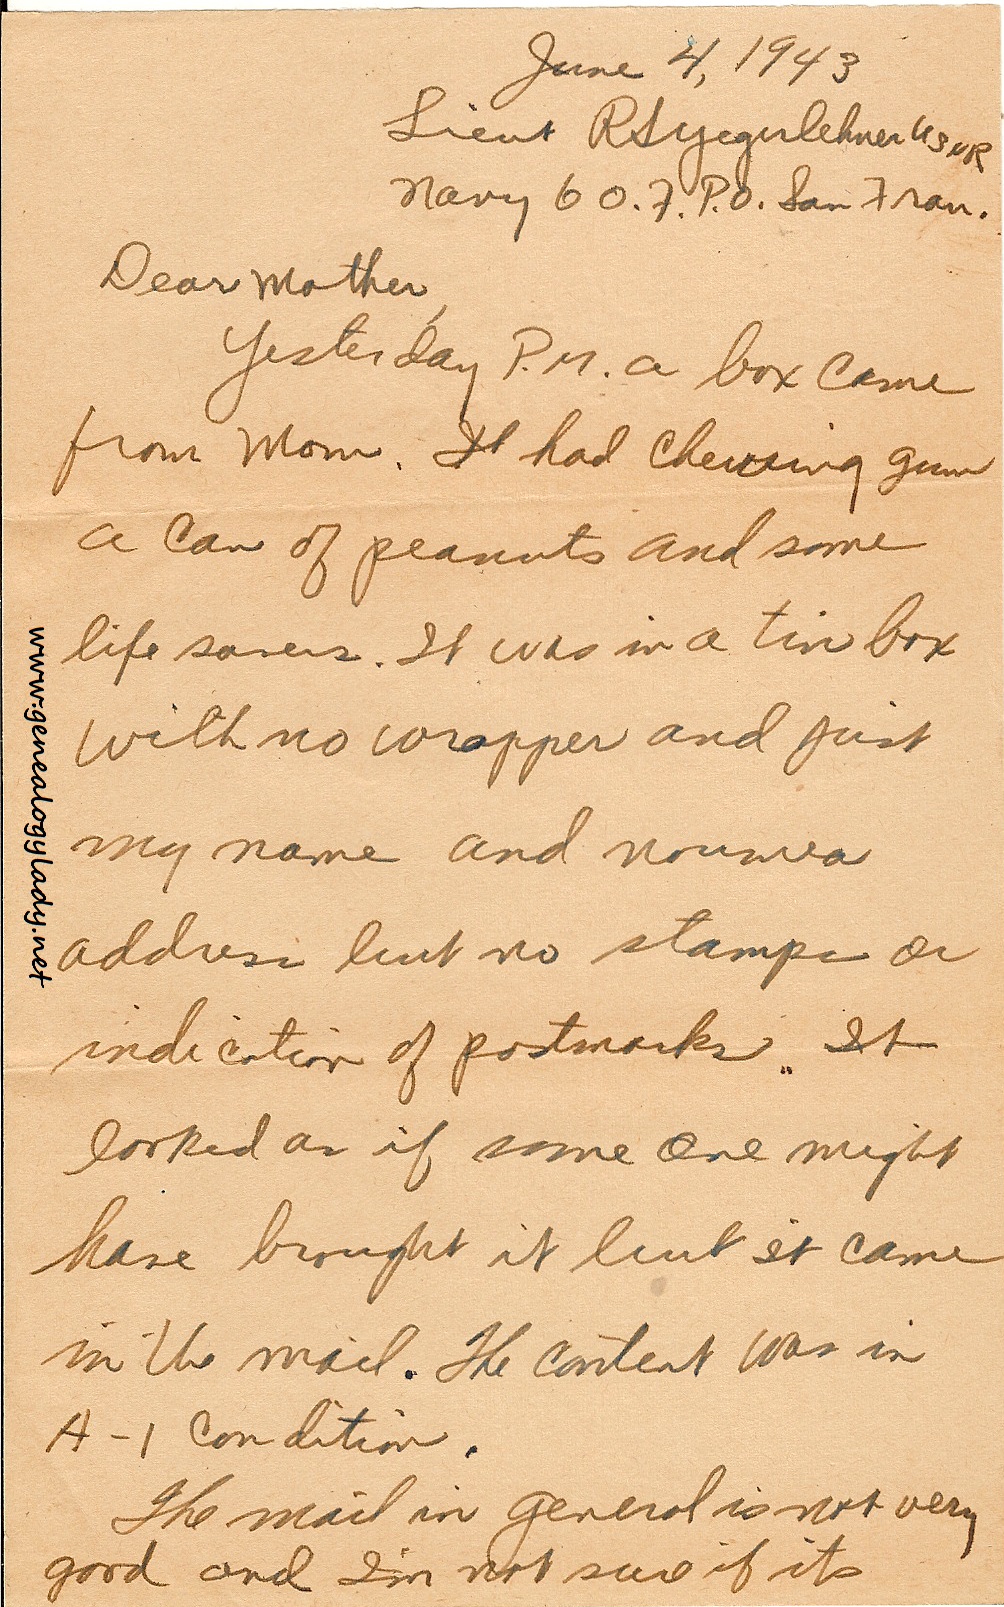 June 4, 1943
Lieut R S Yegerlehner USNR
Navy 60 F.P.O. San Fran.
Dear Mother,
Yesterday P.M. a box came
from Mom. It had chewing gum
a can of peanuts and some
life savers. It was in a tin box
with no wrapper and just
my name and noumea
address but no stamps or
indication of postmarks. It
looked as if some one might
have brought it but it came
in the mail. The content was in
A-1 condition.
The mail in general is not very
good and I'm not sure if its
www.genealogylady.net